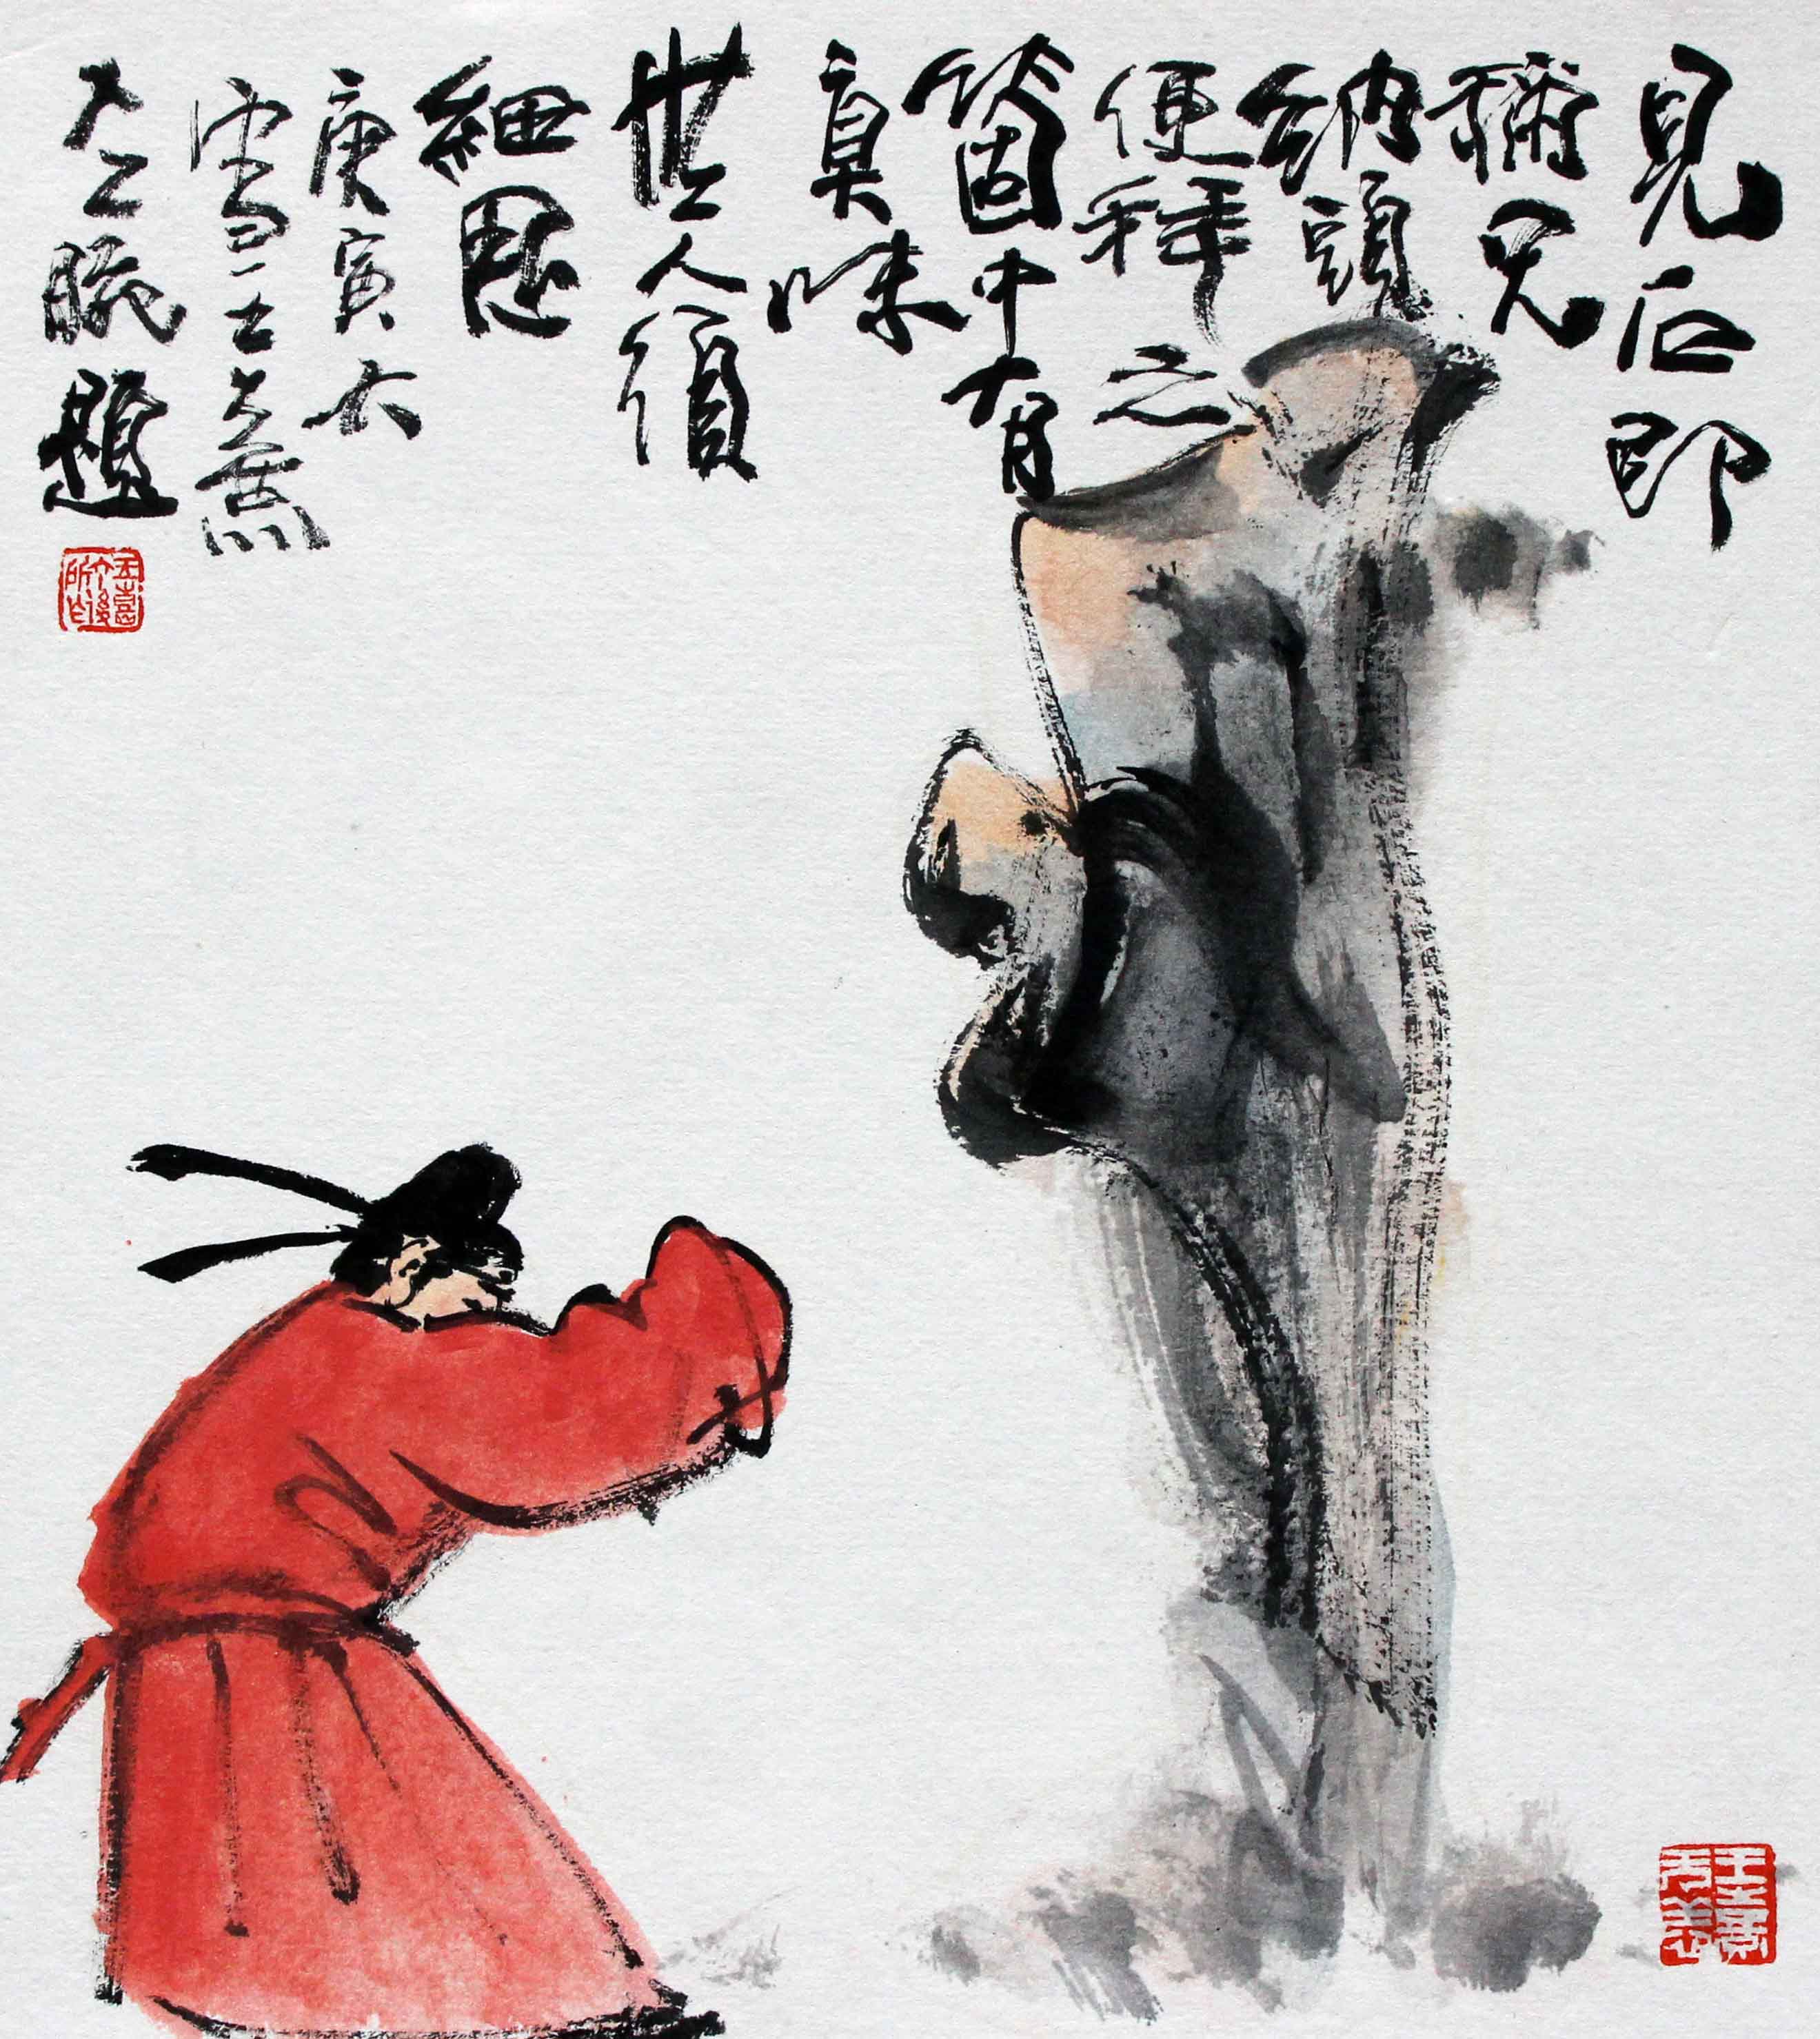 見石即
稱兄
納頭
便拜之
箇中有
真味
世人須
細思
庚寅大
雪
左腕題